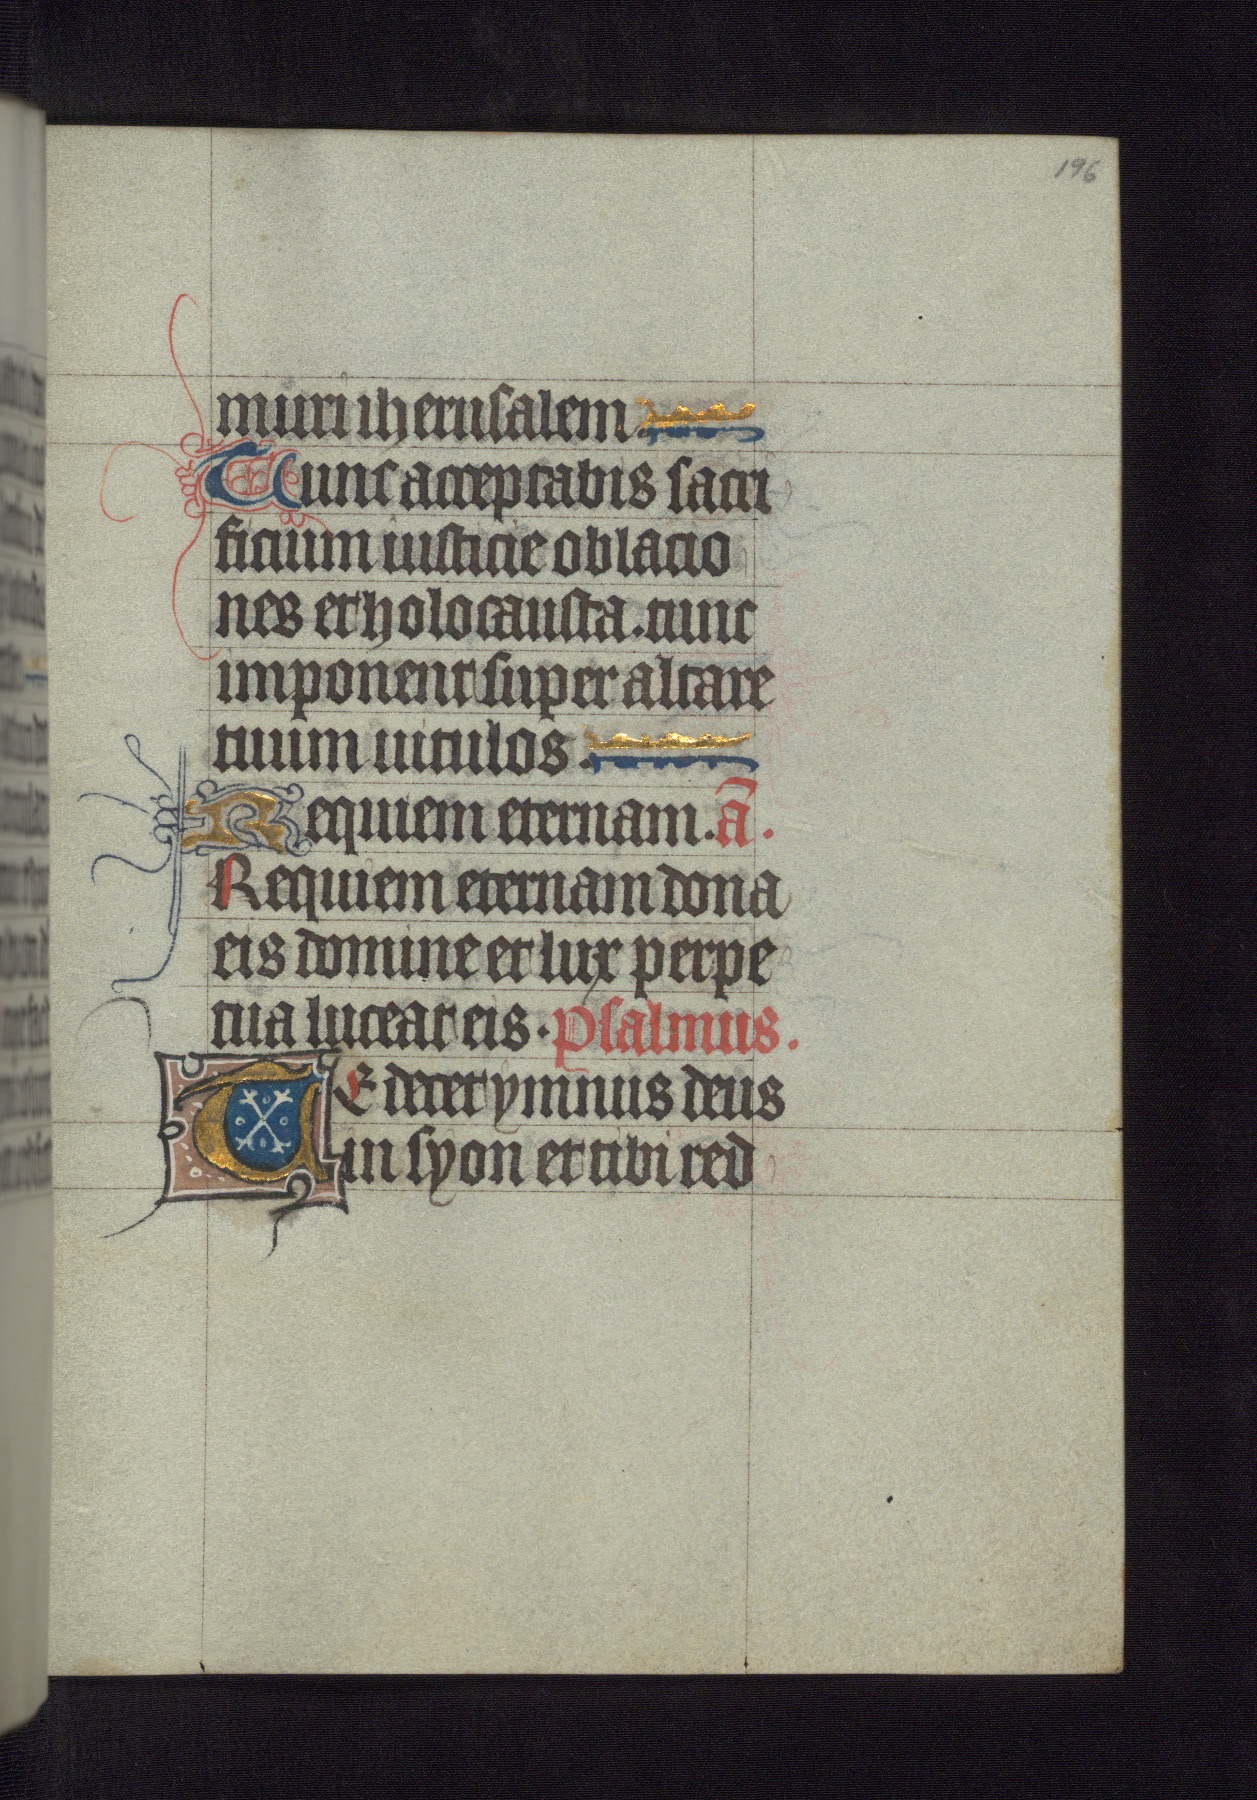 196
muri iherusalem.
Tunc acceptabis sacri
ficium iusticie oblacio
nes et holocausta. tunc
imponent super altare
tuum uitulos.
Requiem eternam. ā.
Requiem eternam dona
eis domine et lux perpe
tua luceat eis. psalmus.
TE decet ymnus deus
in syon et tibi red